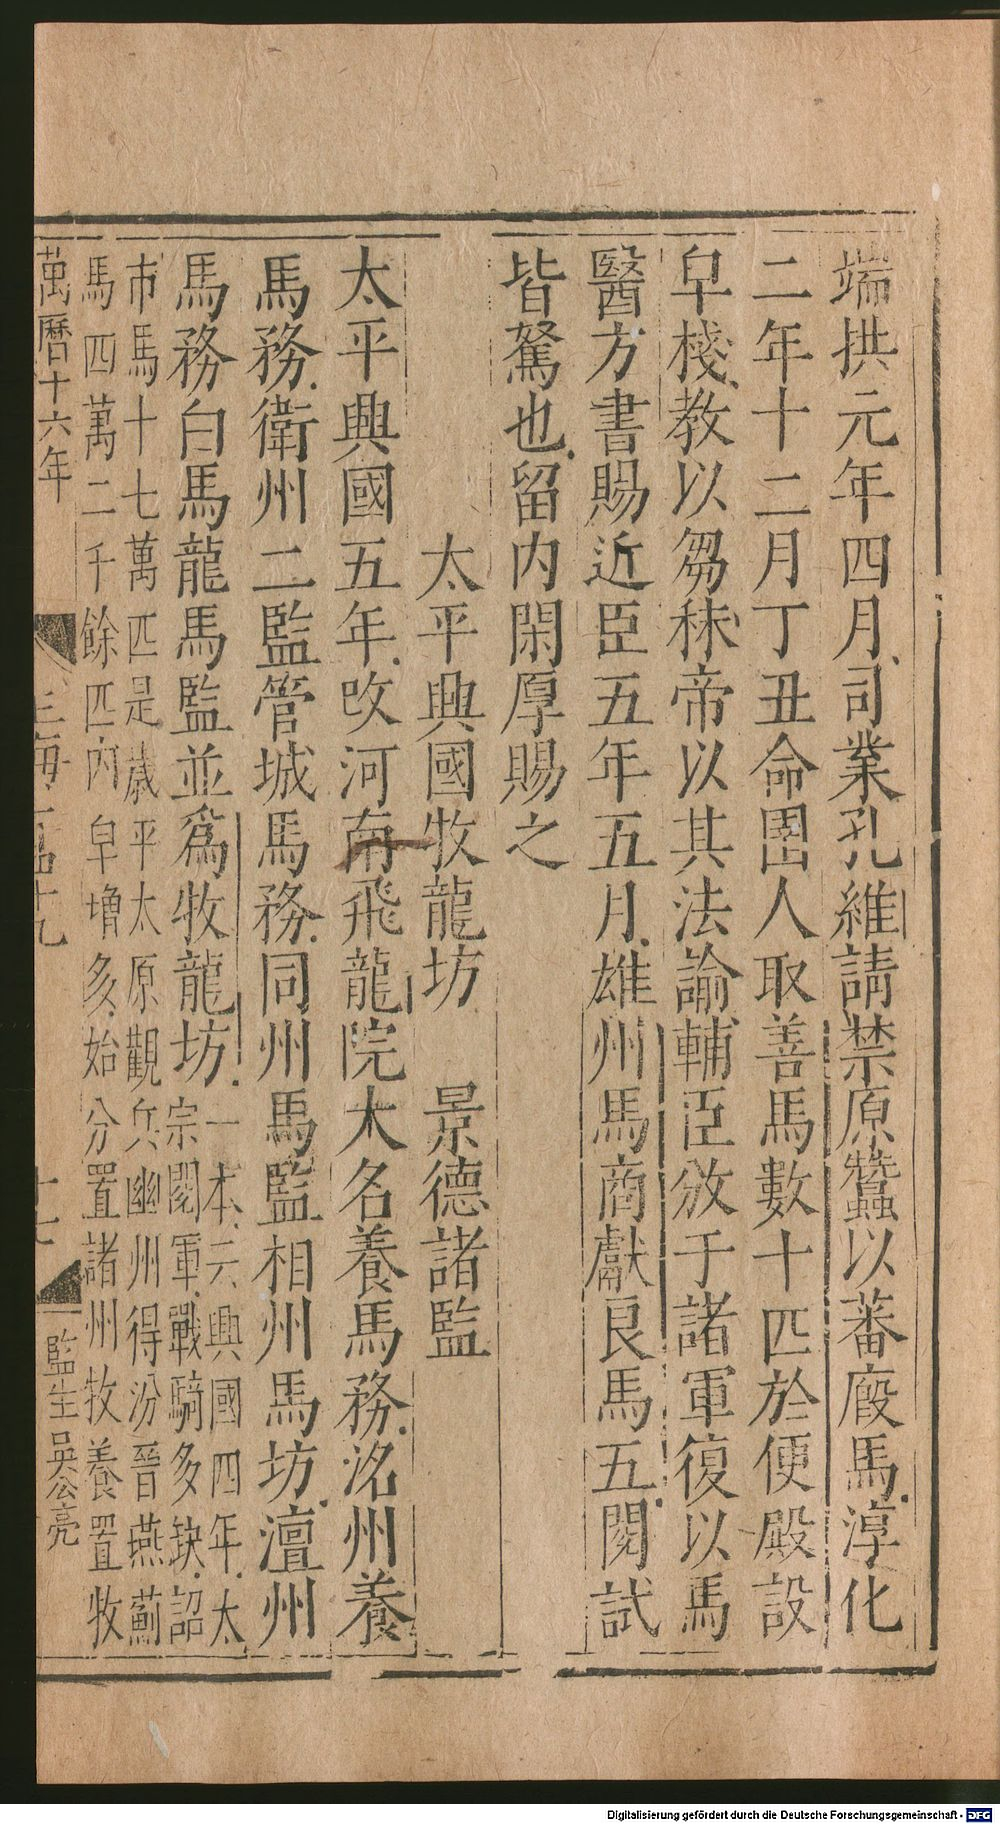 端拱元年四月司業孔維請禁原蠶以蕃廄馬淳化
二年十二月丁丑命圉人取善馬數十匹於便殿設
皁棧教以芻秣帝以其法諭輔臣放于諸軍復以馬
醫方書賜近臣五年五月雄州馬商獻良馬五閱試
皆駑也留内閑厚賜之
太平興國牧龍坊 景德諸監
太平興國五年改河南飛龍院大名養馬務洺州養
馬務衛州二監管城馬務同州馬監相州馬坊澶州
馬務白馬龍馬監並爲牧龍坊
一本云興國四年太
宗閱軍戰騎多缺詔
市馬十七萬匹是歲平太原觀兵幽州得汾晉燕薊
馬四萬二千餘匹内皁增多始分置諸州牧養置牧
萬曆十六年
監生吳公亮
Digitalisierung gefördert durch die Deutsche Forschungsgemeinschaft - DFG